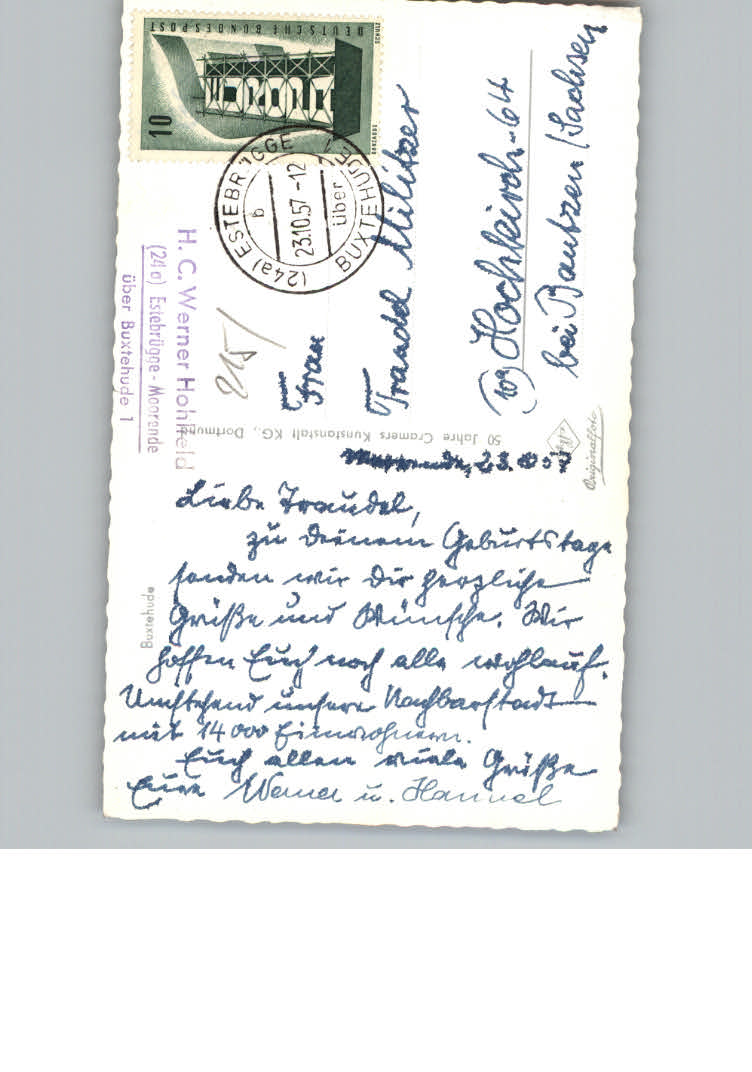 DEUTSCHE BUNDESPOST
10
(24a) ESTEBRÜGGE
b
23.10.57-12
über
BUXTEHUDE
H. C. Werner Hohlfeld
(24a) Estebrügge-Moorende
über Buxtehude 1
Frau
Traudel Militzer
Hochkirch-64
bei Bautzen/Sachsen
50 Jahre Cramers Kunstanstalt KG., Dortmund
Originalfoto
Buxtehude
Moorende, 23.
Liebe Traudel,
zu Deinem Geburtstage
senden wir Dir herzliche
Grüße und Wünsche. Wir
hoffen Euch noch alle wohlauf.
Umstehend unsere Nachbarstadt
mit 14000 Einwohnern.
Euch allen viele Grüße
Eure Werner u. Hannel